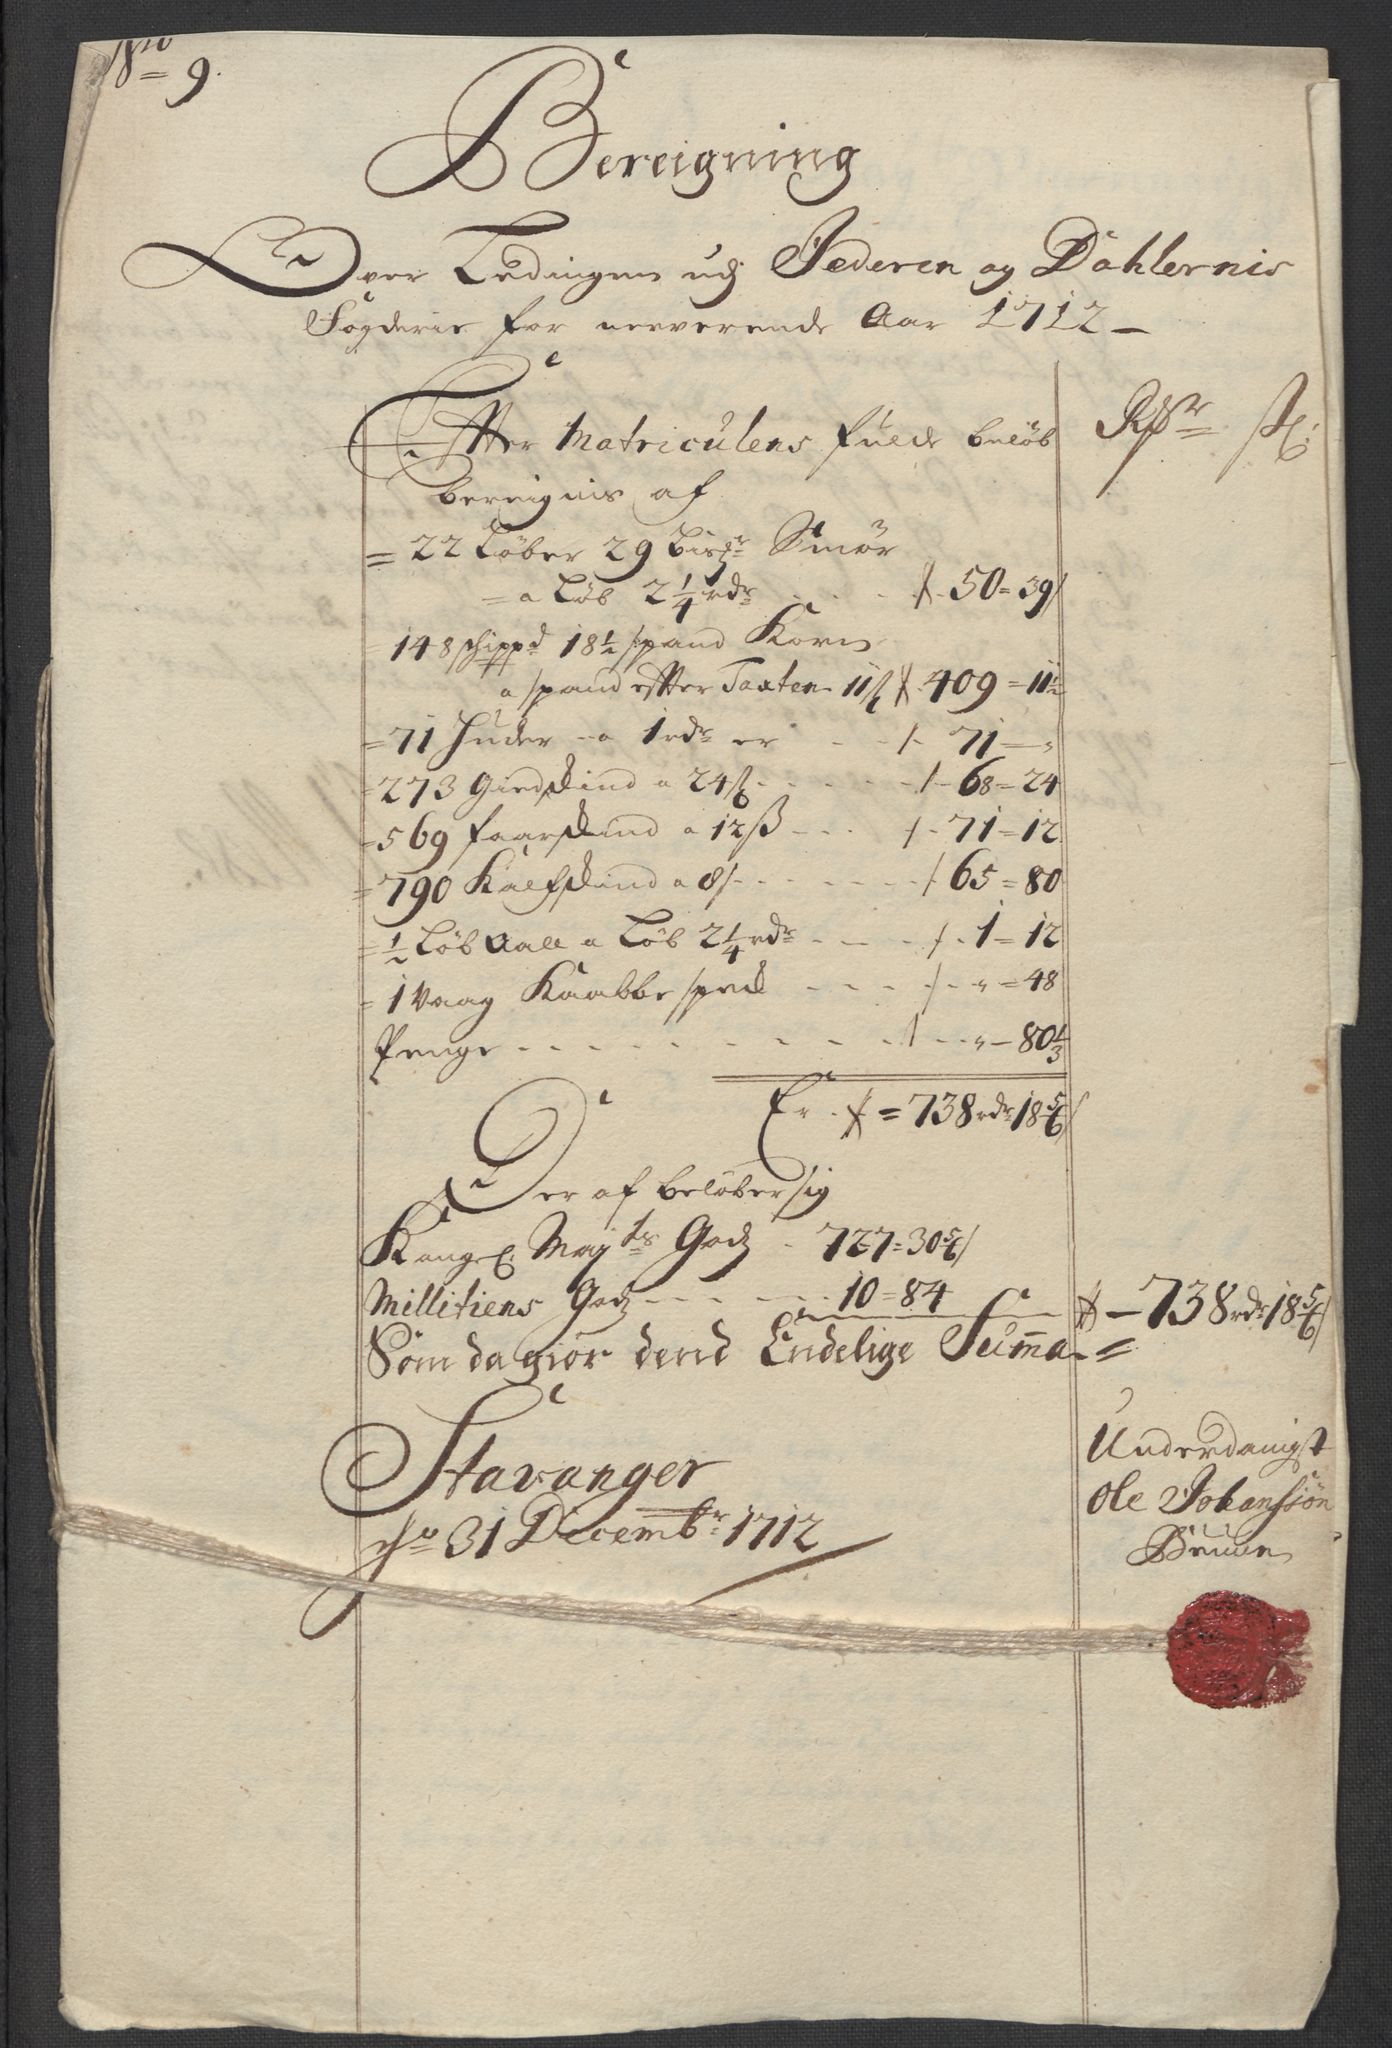 No 9.
Bereigning
Over Ledingen udj Jederen og Dahlernis
Fogderie for nerverende Aar 1712
Rdr ß:
Effter Matriculens fulde beløb
bereignis af
= 22 Løber 29 Bisdr Smør
= a Løb 2 1/4 rdr - - - 50 = 39/
148 schippd 18 1/2 spand Korn
a spand effter Taxten 11 ß 409 = 11 1/2
= 71 Huder - a 1 rdr er - - 71 - „
= 273 Giedskind a 24 ß - - - - 68 = 24
= 569 faarskind a 12 ß - - - 71 = 12
= 790 Kalfskind a 8/ - - - - - 65 = 80
= 1/2 Løb Aall a Løb 2 1/4 rdr - - - 1 = 12
= 1 Vaag Kaabbe speck - - - - „ = 48
Penge - - - - - - - - - - „ - 80 1/3
Er = 738 rdr 18 5/6 /
Der af beløber sig
Kongl. Majts Godz - 727 = 30 5/6 /
Millitiens Godz - - - - 10 = 84 - 738 rdr 18 5/6 /
Som da giør dend Endelige Summa =
Stavanger
dn 31 Decembr 1712
Underdanigst
Ole Johanssøn